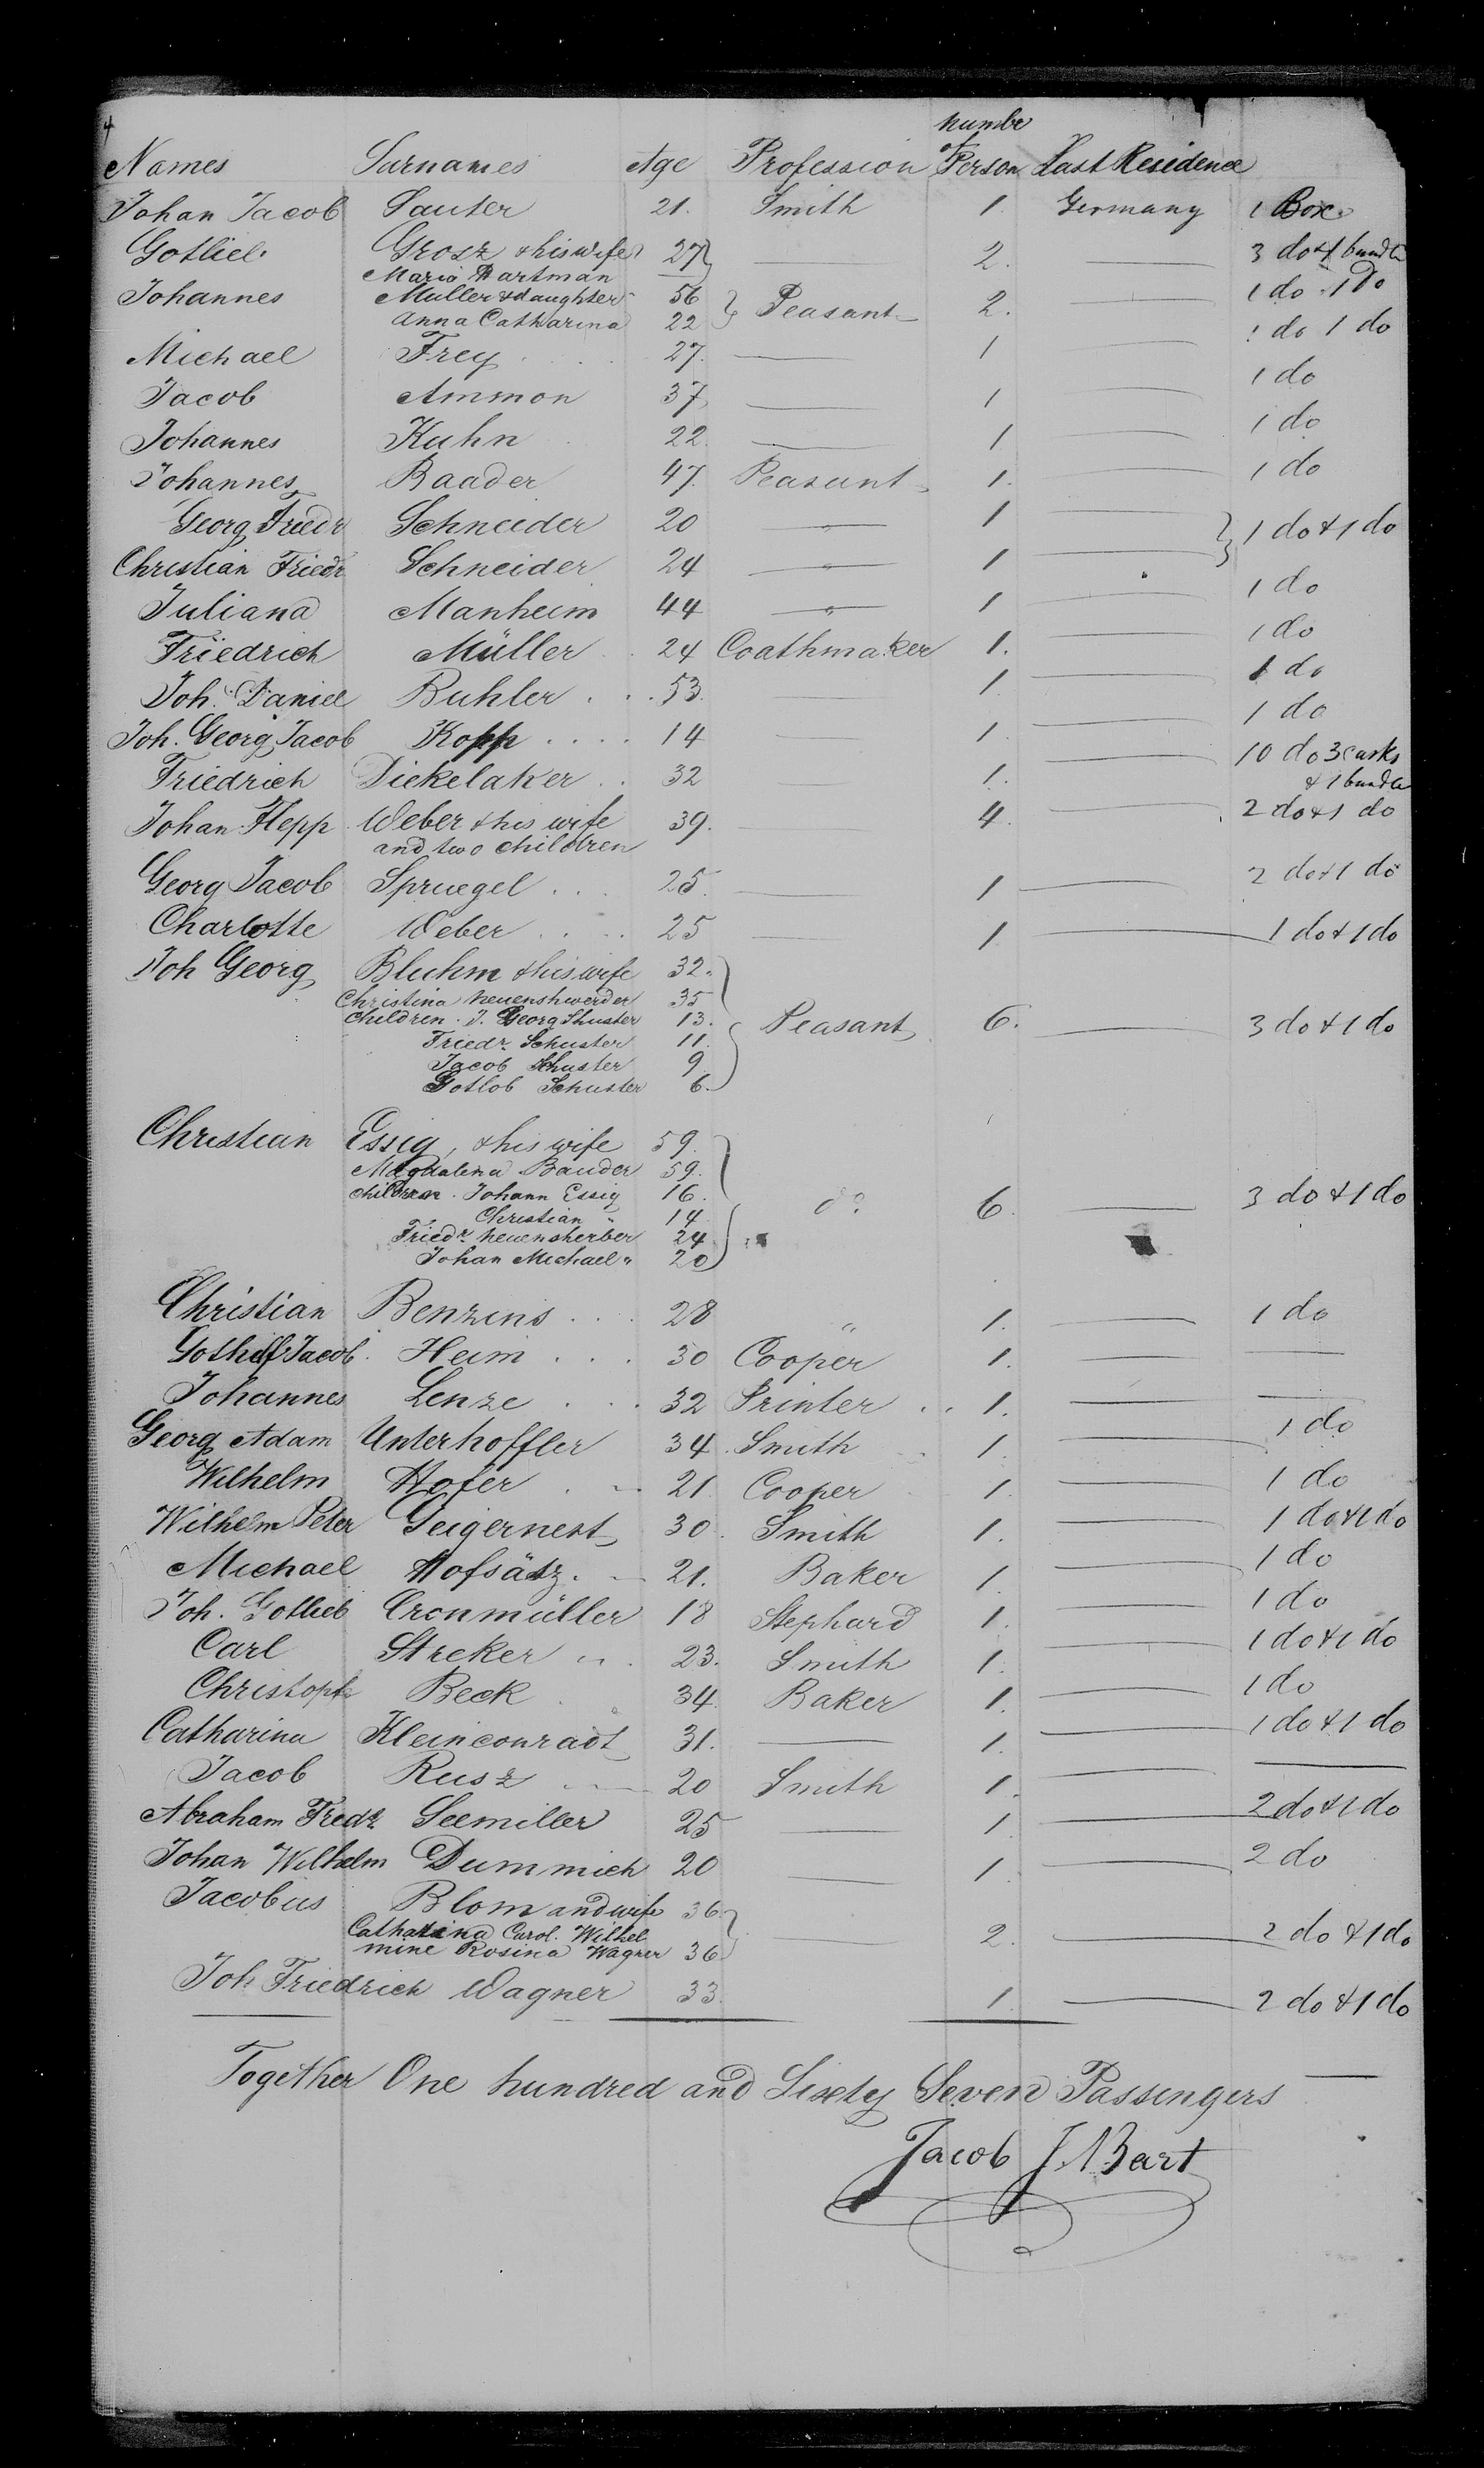 4
Names Surnames Age Profession number of Person Last Residence
Johan Jacob Sauter 21. Smith 1. Germany 1 Box
Gotlieb Grosz & his wife 27 — 2. — 3 do & 1 bundle
Maria Hartman
Johannes Muller & daughter 56 Peasant 2. — 1 do . 1 Do
Anna Catharina 22
Michael Frey 27. — 1 — 1 do 1 do
Jacob Ammon 37, — 1 — 1 do
Johannes Kuhn 22. — 1 — 1 do
Johannes Baader 47. Peasant 1. — 1 do
Georg Friedr Schneider 20 — " — 1 — 1 do & 1 do
Christian Friedr Schneider 24 — " — 1 —
Juliana Manheim 44 — " — 1 — 1 do
Friedrich Müller 24 Coathmaker 1. — 1 do
Joh. Daniel Buhler . . . 53. — 1. — 1 do
Joh. Georg Jacob Kopp . . . . 14 — 1. — 1 do
Friedrich Diekelaker . . 32 — 1. — 10 do 3 casks
& 1 bundle
Johan Hepp Weber & his wife 39. — 4. — 2 do & 1 do
and two children
Georg Jacob Spruegel . . . 25. — 1 — 2 do & 1 do
Charlotte Weber . . . . 25 — 1 — 1 do & 1 do
Joh Georg Bluhm & his wife 32.
Christina Neuenshwerder 35
children . J. Georg Shuster 13. Peasant 6. — 3 do & 1 do
Friedr. Schuster 11.
Jacob Shuster 9.
Gotlob Schuster 6.
Christian Essig, & his wife 59.
Magdalena Bauder 59.
children . Johann Essig 16. do 6. — 3 do & 1 do
Christian " 14
Friedr Neuensherber 24
Johan Michael " 20
Christian Benzins . . . 28 " 1. — 1 do
Gothilf Jacob. Heim . . . 30 Cooper 1. — —
Johannes Lenze . . . 32 Printer . . 1. — —
Georg Adam Unterhoffler 34. Smith 1. — 1 do
Wilhelm Hofer . . 21 Cooper 1. — 1 do
Wilhelm Peter Geigernest 30. Smith 1. — 1 do & 1 do
Michael Hofsätz. — 21. Baker 1. — 1 do
Joh. Gotlieb Cronmüller 18 Stephard 1. — 1 do
Carl Streker . . . 23. Smith 1. — 1 do & 1 do
Christoph Beck . 34. Baker 1. — 1 do
Catharina Kleinconradt 31. — 1. — 1 do & 1 do
Jacob Rusz . — 20 Smith 1. — —
Abraham Fredr Seemiller 25 — 1. — 2 do & 1 do
Johan Wilhelm Dummich 20 — 1. — 2 do
Jacobus Blom and wife 36.
Catharina Carol. Wilhel — 2. — 2 do & 1 do
mine Rosina Wagner 36.
Joh Friedrich Wagner 33. 1. — 2 do & 1 do
Together One hundred and Sixty Seven Passengers —
Jacob J. Bart